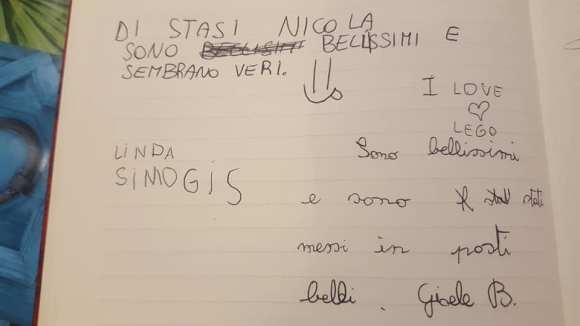 DI STASI NICOLA
SONO BELLISSIMI E
SEMBRANO VERI.
I LOVE
LEGO
LINDA
SIMOGIS
Sono bellissimi
e sono stati
messi in posti
belli. Gisele B.